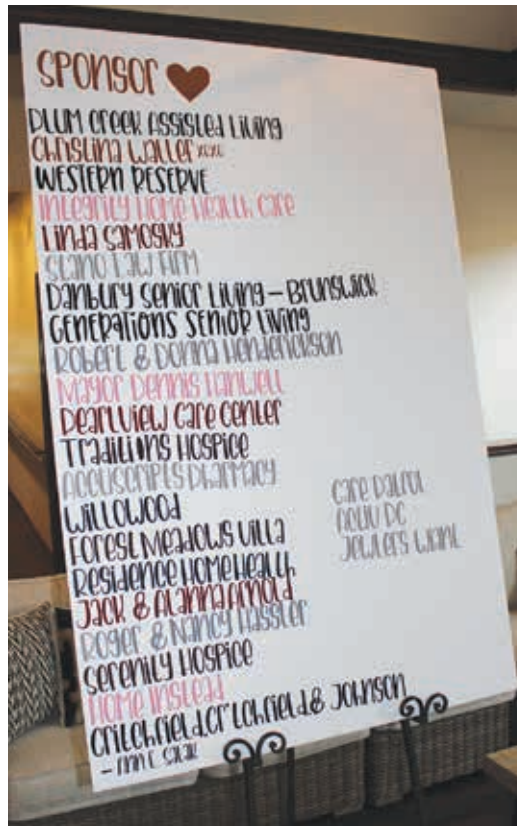 SPONSOR
PLUM CREEK ASSISTED LIVING
CHRISTINA WALLER XOXO
WESTERN RESERVE
INTEGRITY HOME HEALTH CARE
LINDA SAMOSKY
STANO LAW FIRM
DANBURY SENIOR LIVING – BRUNSWICK
GENERATIONS SENIOR LIVING
ROBERT & DONNA HENDERICKSON
MAYOR DENNIS HANWELL
PEARLVIEW CARE CENTER
TRADITIONS HOSPICE
ACCUSCRIPTS PHARMACY
WILLOWOOD
FOREST MEADOWS VILLA
RESIDENCE HOME HEALTH
JACK & ALANNA ARNOLD
ROGER & NANCY HASSLER
SERENITY HOSPICE
HOME INSTEAD
CRITCHFIELD, CRITCHFIELD & JOHNSON
CARE PATROL